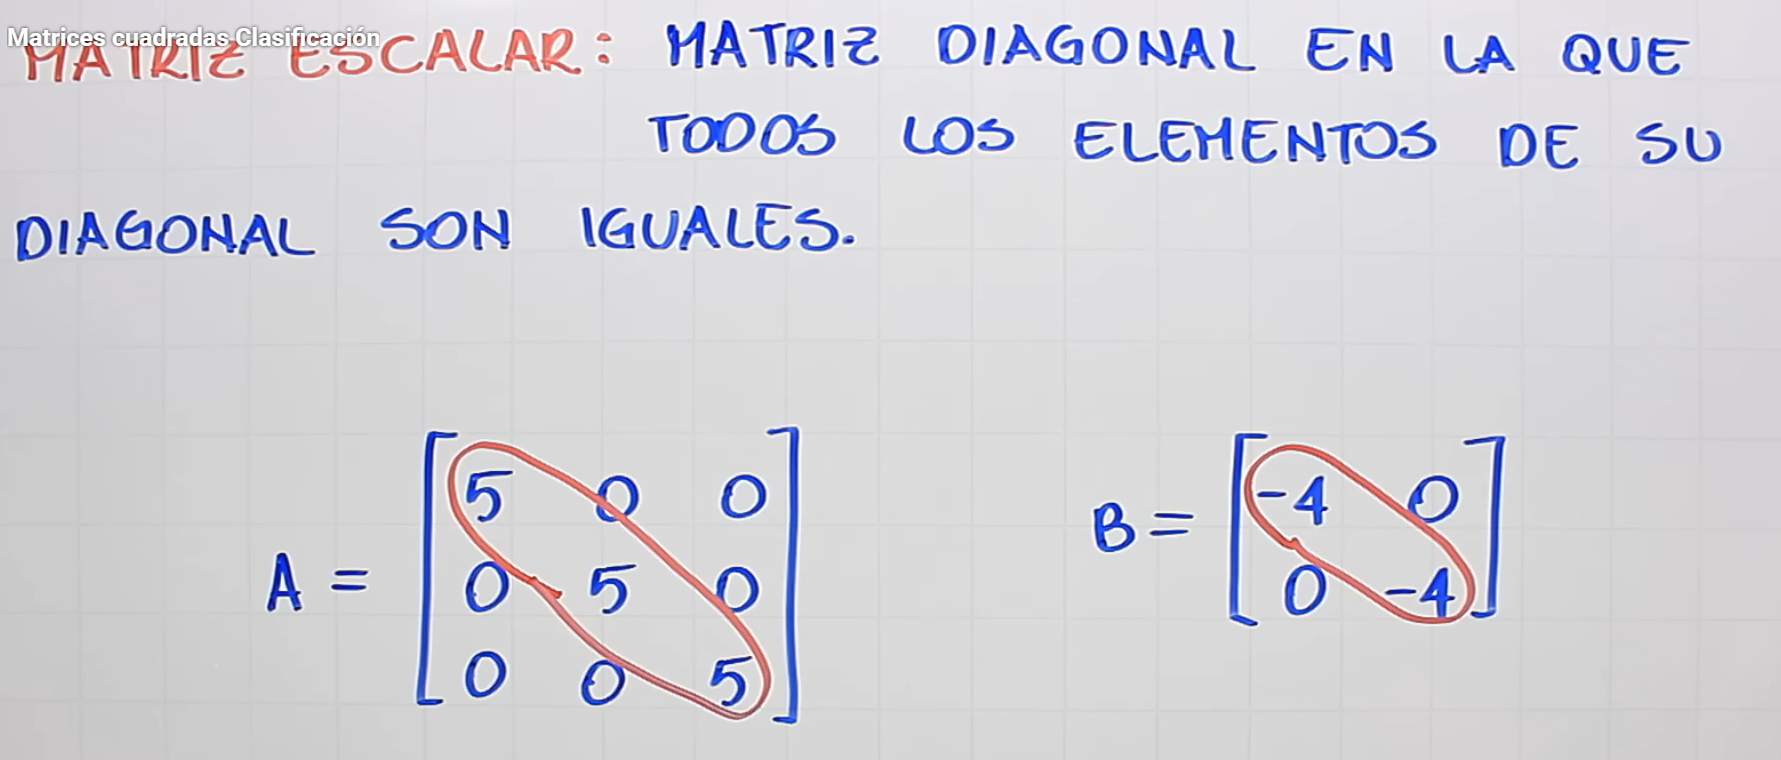 Matrices cuadradas Clasificación
MATRIZ ESCALAR: MATRIZ DIAGONAL EN LA QUE
TODOS LOS ELEMENTOS DE SU
DIAGONAL SON IGUALES.
A = [5 0 0
0 5 0
0 0 5]
B = [-4 0
0 -4]